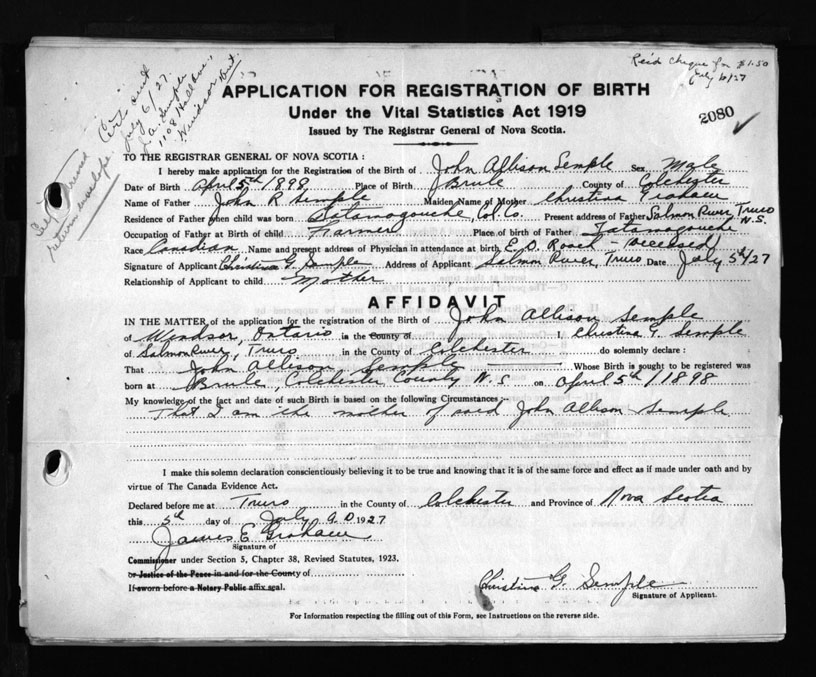 Rec'd cheque for $1.50
July 6/27
Cert sent
July 6/27.
J. A. Semple
1108 Hall Ave.,
Windsor Ont.
return envelope
APPLICATION FOR REGISTRATION OF BIRTH
Under the Vital Statistics Act 1919
2080 ✓
Issued by The Registrar General of Nova Scotia.
TO THE REGISTRAR GENERAL OF NOVA SCOTIA :
I hereby make application for the Registration of the Birth of John Allison Semple Sex Male
Date of Birth April 5th 1898 Place of Birth Brule County of Colchester
Name of Father John R Semple Maiden Name of Mother Christina Graham
Residence of Father when child was born Tatamagouche, Col. Co. Present address of Father Salmon River, Truro N.S.
Occupation of Father at Birth of child Farmer Place of birth of Father Tatamagouche
Race Canadian Name and present address of Physician in attendance at birth E. D. Roach - (deceased)
Signature of Applicant Christina G. Semple Address of Applicant Salmon River, Truro Date July 5th/27
Relationship of Applicant to child Mother
AFFIDAVIT
IN THE MATTER of the application for the registration of the Birth of John Allison Semple
of Windsor, Ontario in the County of I, Christina G. Semple
of Salmon River, Truro in the County of Colchester do solemnly declare :
That John Allison Semple Whose Birth is sought to be registered was
born at Brule, Colchester County N.S on April 5th/1898
My knowledge of the fact and date of such Birth is based on the following Circumstances :-
That I am the mother of said John Allison Semple
I make this solemn declaration conscientiously believing it to be true and knowing that it is of the same force and effect as if made under oath and by
virtue of The Canada Evidence Act.
Declared before me at Truro in the County of Colchester and Province of Nova Scotia
this 5th day of July A.D. 1927
James E Graham
Signature of
Commissioner under Section 5, Chapter 38, Revised Statutes, 1923.
or Justice of the Peace in and for the County of
If sworn before a Notary Public affix seal.
Christina G. Semple
Signature of Applicant.
For Information respecting the filling out of this Form, see Instructions on the reverse side.